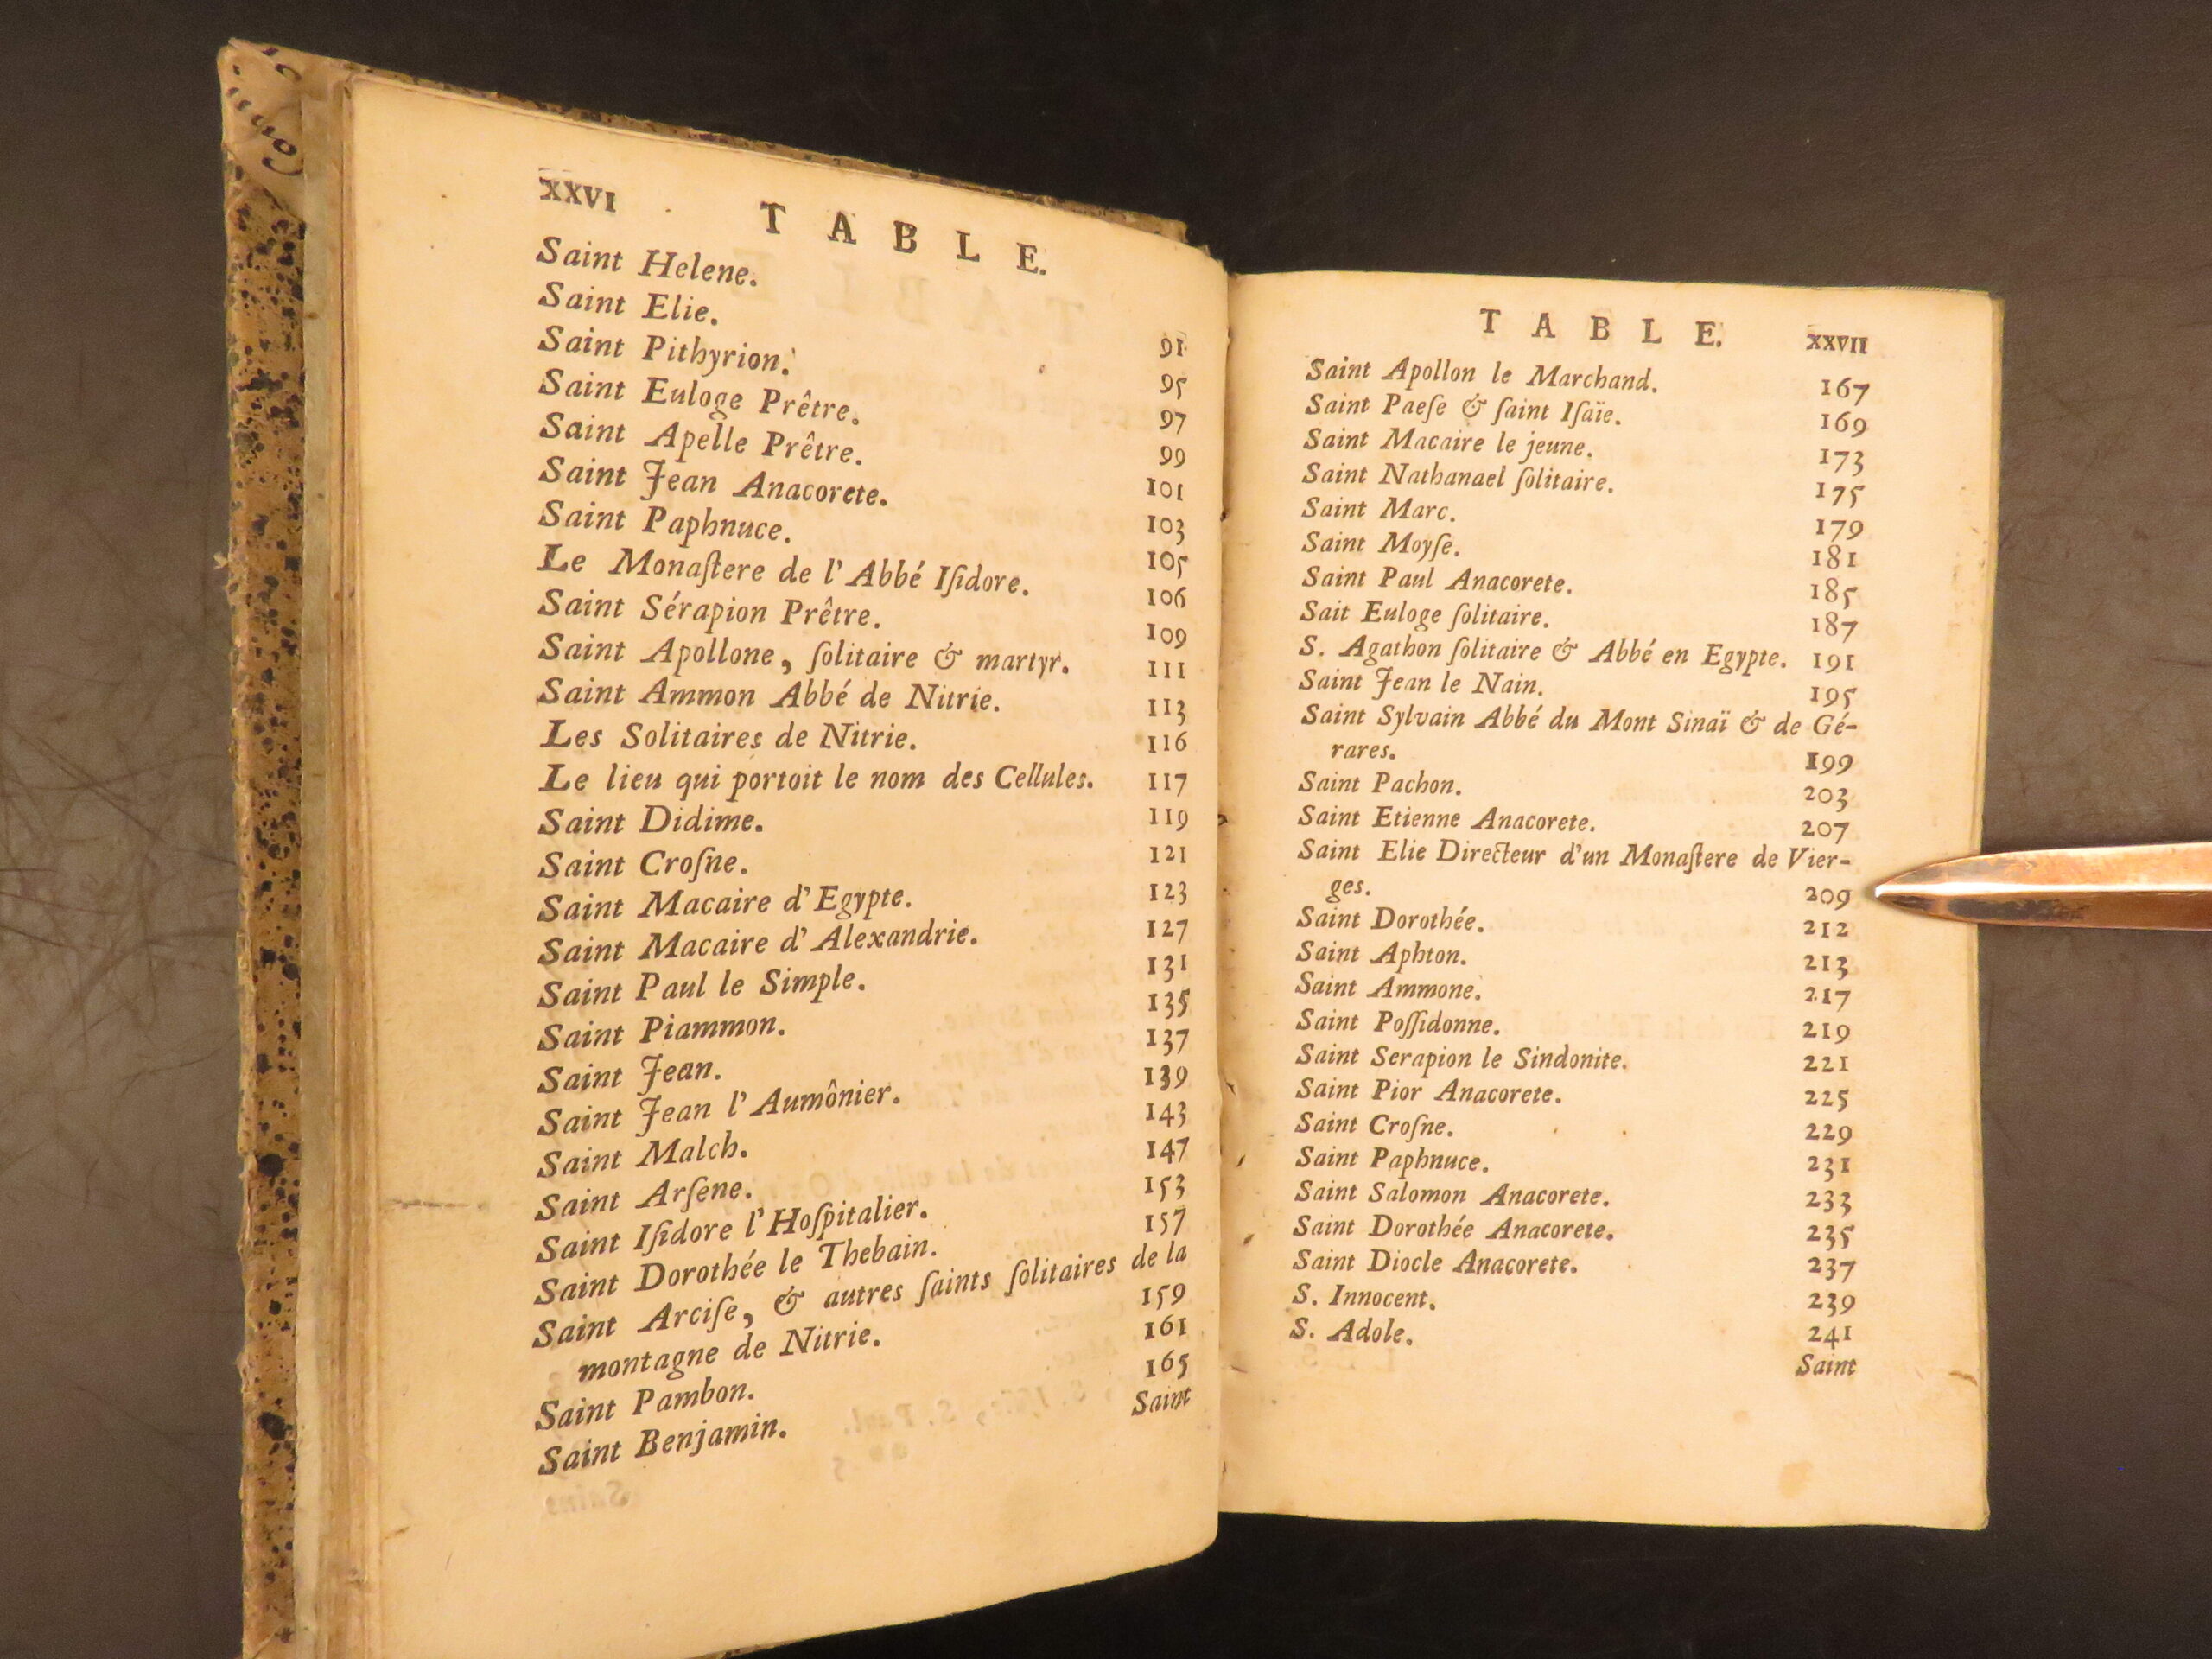 XXVI TABLE.
Saint Helene. 91
Saint Elie. 95
Saint Pithyrion. 97
Saint Euloge Prêtre. 99
Saint Apelle Prêtre. 101
Saint Jean Anacorete. 103
Saint Paphnuce. 105
Le Monaſtere de l'Abbé Iſidore. 106
Saint Sérapion Prêtre. 109
Saint Apollone, ſolitaire & martyr. 111
Saint Ammon Abbé de Nitrie. 113
Les Solitaires de Nitrie. 116
Le lieu qui portoit le nom des Cellules. 117
Saint Didime. 119
Saint Croſne. 121
Saint Macaire d'Egypte. 123
Saint Macaire d'Alexandrie. 127
Saint Paul le Simple. 131
Saint Piammon. 135
Saint Jean. 137
Saint Jean l'Aumônier. 139
Saint Malch. 143
Saint Arſene. 147
Saint Iſidore l'Hoſpitalier. 153
Saint Dorothée le Thebain. 157
Saint Arciſe, & autres ſaints ſolitaires de la
montagne de Nitrie. 159
Saint Pambon. 161
Saint Benjamin. 165
Saint
TABLE. XXVII
Saint Apollon le Marchand. 167
Saint Paeſe & ſaint Iſaïe. 169
Saint Macaire le jeune. 173
Saint Nathanael ſolitaire. 175
Saint Marc. 179
Saint Moyſe. 181
Saint Paul Anacorete. 185
Sait Euloge ſolitaire. 187
S. Agathon ſolitaire & Abbé en Egypte. 191
Saint Jean le Nain. 195
Saint Sylvain Abbé du Mont Sinaï & de Gé-
rares. 199
Saint Pachon. 203
Saint Etienne Anacorete. 207
Saint Elie Directeur d'un Monaſtere de Vier-
ges. 209
Saint Dorothée. 212
Saint Aphton. 213
Saint Ammone. 217
Saint Poſſidonne. 219
Saint Serapion le Sindonite. 221
Saint Pior Anacorete. 225
Saint Croſne. 229
Saint Paphnuce. 231
Saint Salomon Anacorete. 233
Saint Dorothée Anacorete. 235
Saint Diocle Anacorete. 237
S. Innocent. 239
S. Adole. 241
Saint